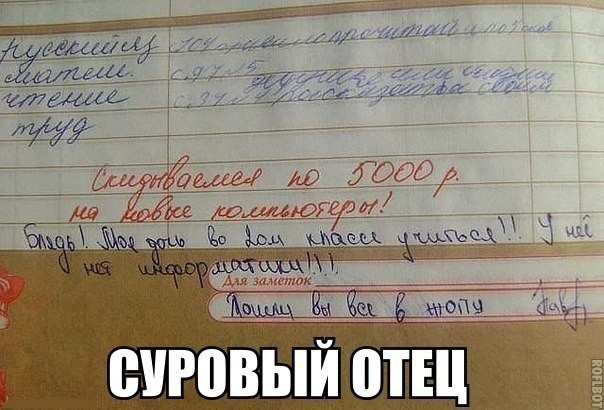 русский яз 104 правило прочитать и
матем. с.97 15
чтение с.39
труд
Скидываемся по 5000 р.
на новые компьютеры!
Блядь! Моя дочь во 2ом классе учиться!! У неё
нет информатики!!!
Для заметок
Пошли вы все в жопу
СУРОВЫЙ ОТЕЦ
ROFLBOT